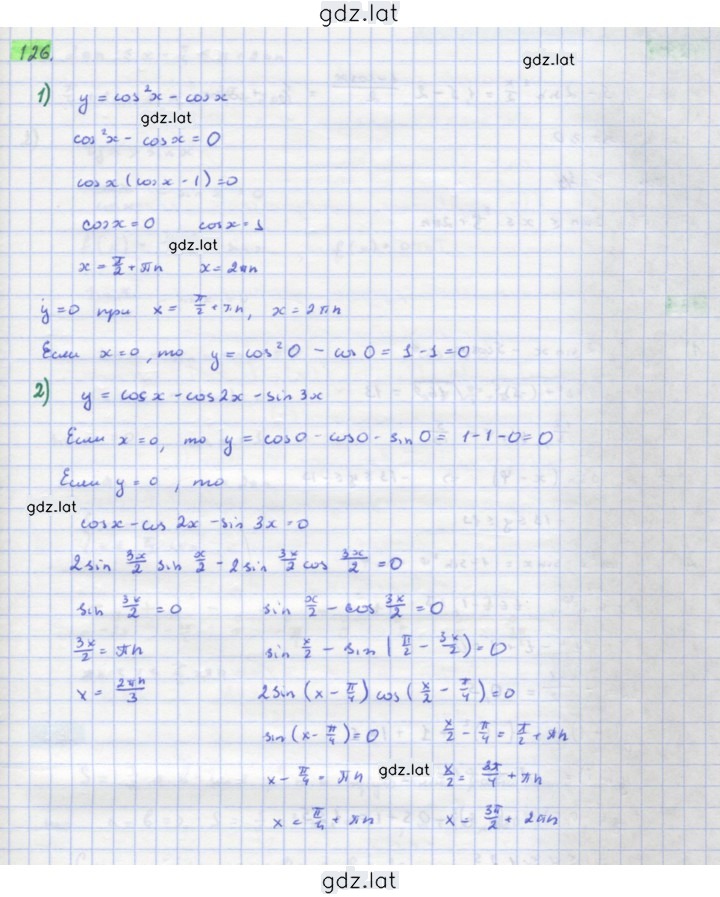 gdz.lat
126.
gdz.lat
1) y = cos²x - cosx
gdz.lat
cos²x - cosx = 0
cosx (cosx - 1) = 0
cosx = 0 cosx = 1
gdz.lat
x = π/2 + πn x = 2πn
y = 0 при x = π/2 + πn, x = 2πn
Если x = 0, то y = cos²0 - cos0 = 1 - 1 = 0
2) y = cosx - cos2x - sin3x
Если x = 0, то y = cos0 - cos0 - sin0 = 1 - 1 - 0 = 0
Если y = 0, то
gdz.lat
cosx - cos2x - sin3x = 0
2sin 3x/2 sin x/2 - 2sin 3x/2 cos 3x/2 = 0
sin 3x/2 = 0 sin x/2 - cos 3x/2 = 0
3x/2 = πn sin x/2 - sin(π/2 - 3x/2) = 0
x = 2πn/3 2sin(x - π/4) cos(x/2 - π/4) = 0
sin(x - π/4) = 0 x/2 - π/4 = π/2 + πn
x - π/4 = πn gdz.lat x/2 = 3π/4 + πn
x = π/4 + πn x = 3π/2 + 2πn
gdz.lat